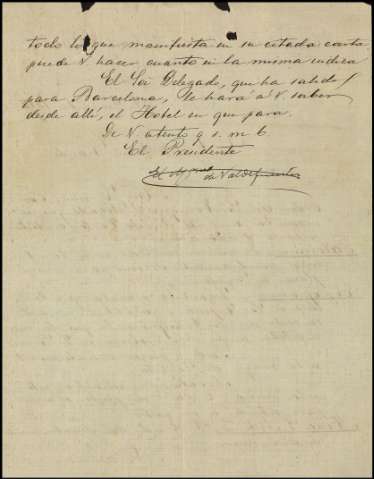 todo lo que manifiesta en su citada carta
puede V hacer cuanto en la misma indica
El Sor Delegado, que ha salido
para Barcelona, le hará á V. saber
desde allí, el Hotel en que para.
De V. atento q s. m b.
El Presidente
El Mqués de Valdefuentes